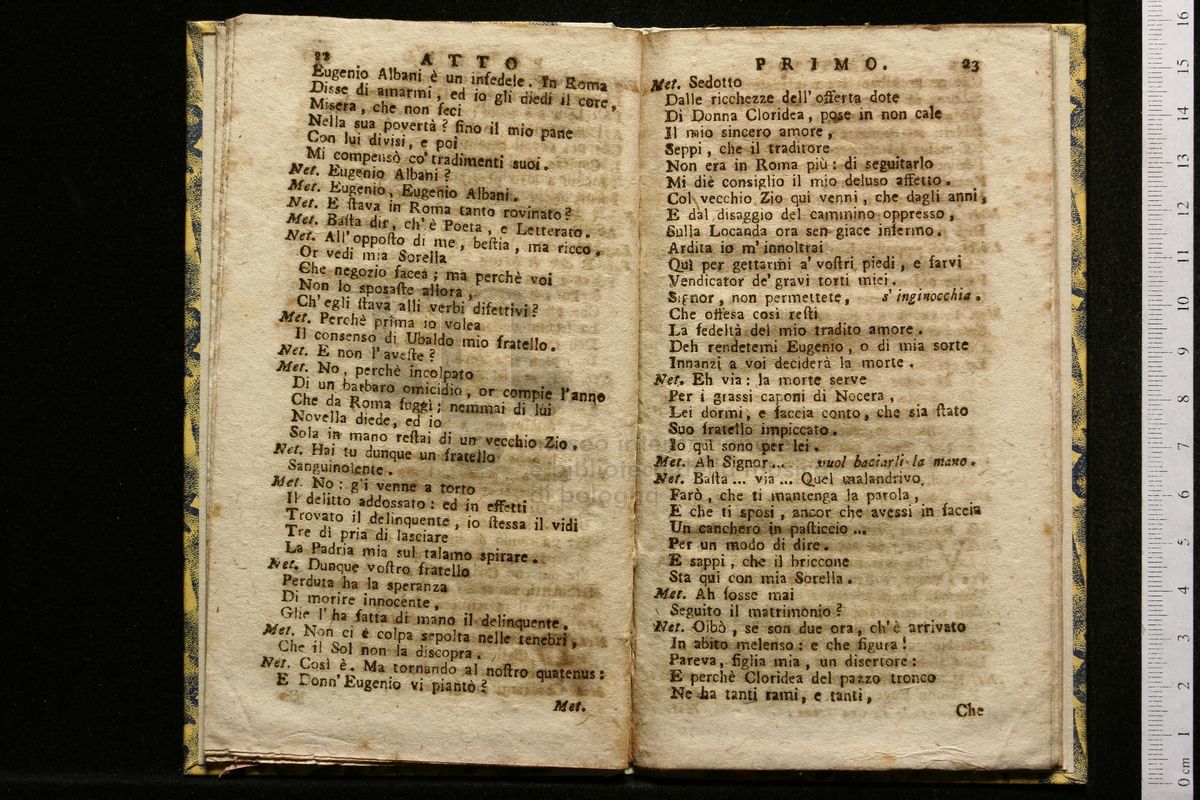 22 ATTO
Eugenio Albani è un infedele. In Roma
Disse di amarmi, ed io gli diedi il core,
Misera, che non feci
Nella sua povertà? fino il mio pane
Con lui divisi, e poi
Mi compensò co' tradimenti suoi.
Net. Eugenio Albani?
Met. Eugenio, Eugenio Albani.
Net. E ſtava in Roma tanto rovinato?
Met. Baſta dir, ch'è Poeta, e Letterato.
Net. All'oppoſto di me, beſtia, ma ricco.
Or vedi mia Sorella
Che negozio facea; ma perchè voi
Non lo sposaſte allora,
Ch'egli ſtava alli verbi difettivi?
Met. Perchè prima io volea
Il consenso di Ubaldo mio fratello.
Net. E non l'aveſte?
Met. No, perchè incolpato
Di un barbaro omicidio, or compie l'anno
Che da Roma fuggì; nemmai di lui
Novella diede, ed io
Sola in mano reſtai di un vecchio Zio.
Net. Hai tu dunque un fratello
Sanguinolente.
Met. No: g'i venne a torto
Il delitto addossato: ed in effetti
Trovato il delinquente, io ſtessa il vidi
Tre dì pria di lasciare
La Padria mia sul talamo spirare.
Net. Dunque voſtro fratello
Perduta ha la speranza
Di morire innocente,
Glie l'ha fatta di mano il delinquente.
Met. Non ci è colpa sepolta nelle tenebri,
Che il Sol non la discopra.
Net. Così è. Ma tornando al noſtro quatenus:
E Donn'Eugenio vi piantò?
Met.
PRIMO. 23
Met. Sedotto
Dalle ricchezze dell'offerta dote
Di Donna Cloridea, pose in non cale
Il mio sincero amore,
Seppi, che il traditore
Non era in Roma più: di seguitarlo
Mi diè consiglio il mio deluso affetto.
Col vecchio Zio qui venni, che dagli anni,
E dal disaggio del cammino oppresso,
Sulla Locanda ora sen giace infermo.
Ardita io m'innoltrai
Quì per gettarmi a' voſtri piedi, e farvi
Vendicator de' gravi torti miei.
Signor, non permettete, s'inginocchia.
Che offesa così reſti
La fedeltà del mio tradito amore.
Deh rendetemi Eugenio, o di mia sorte
Innanzi a voi deciderà la morte.
Net. Eh via: la morte serve
Per i grassi caponi di Nocera,
Lei dormi, e faccia conto, che sia ſtato
Suo fratello impiccato.
Io quì sono per lei.
Met. Ah Signor... vuol baciarli la mano.
Net. Baſta... via... Quel malandrivo,
Farò, che ti mantenga la parola,
E che ti sposi, ancor che avessi in faccia
Un canchero in paſticcio...
Per un modo di dire.
E sappi, che il briccone
Sta qui con mia Sorella.
Met. Ah fosse mai
Seguito il matrimonio?
Net. Oibò, se son due ora, ch'è arrivato
In abito melenso: e che figura!
Pareva, figlia mia, un disertore:
E perchè Cloridea del pazzo tronco
Ne ha tanti rami, e tanti,
Che